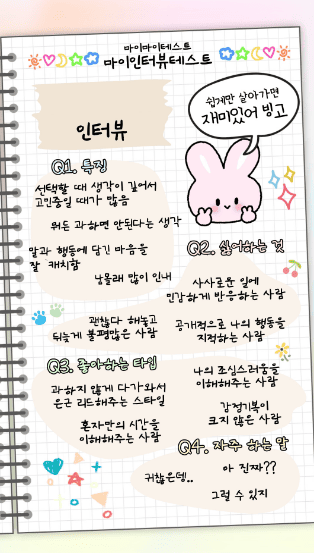 마이마이테스트
마이인터뷰테스트
쉽게만 살아가면
재미있어 빙고
인터뷰
Q1. 특징
선택할 때 생각이 깊어서
고민중일 때가 많음
뭐든 과하면 안된다는 생각
말과 행동에 담긴 마음을
잘 캐치함
남몰래 많이 인내
괜찮다 해놓고
뒤늦게 불평많은 사람
Q2. 싫어하는 것
사사로운 일에
민감하게 반응하는 사람
공개적으로 나의 행동을
지적하는 사람
나의 조심스러움을
이해해주는 사람
감정기복이
크지 않은 사람
Q3. 좋아하는 타입
과하지 않게 다가와서
은근 리드해주는 스타일
혼자만의 시간을
이해해주는 사람
Q4. 자주 하는 말
귀찮은뎅..
아 진짜??
그럴 수 있지